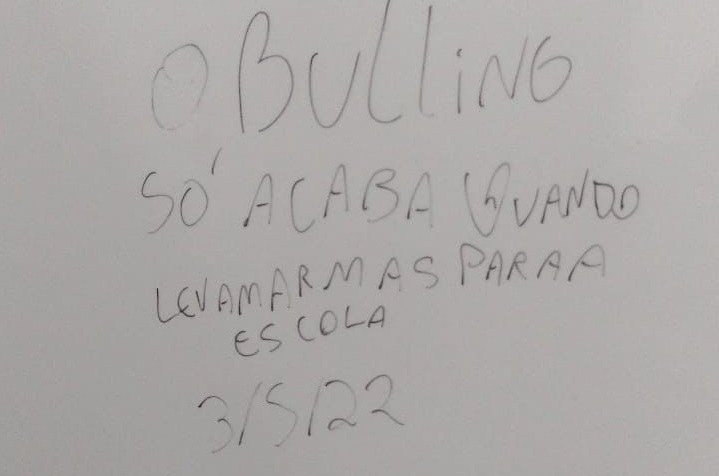 O BULLiNG
SÓ ACABA QUANDO
LEVAMARMAS PARA A
ESCOLA
3/5/22